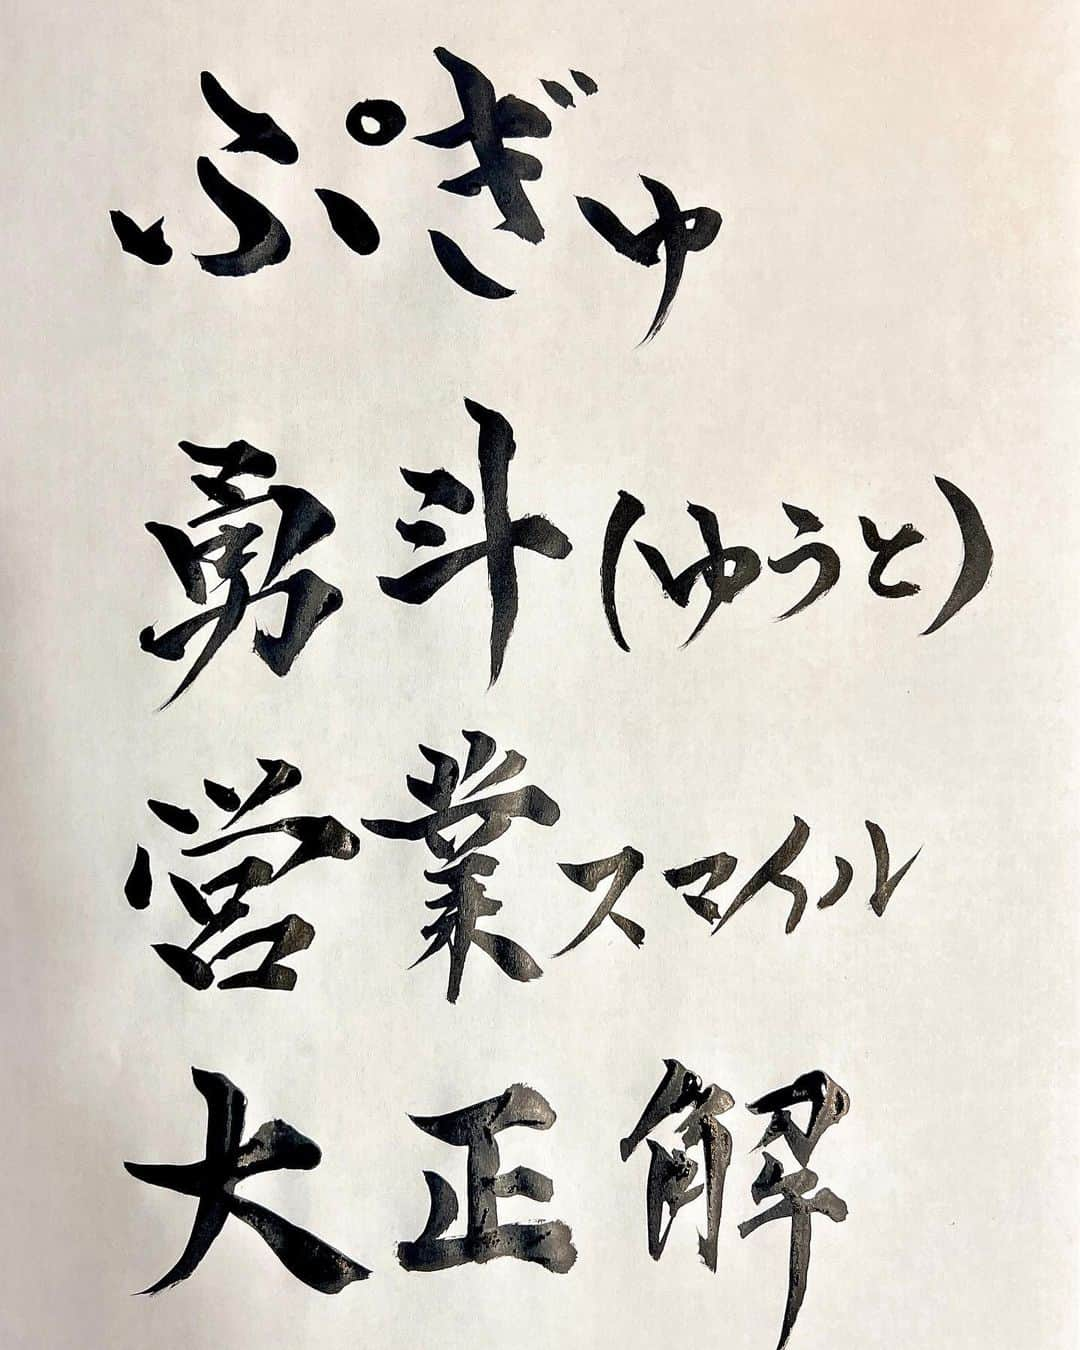 ぷぎゅ
勇斗(ゆうと)
営業スマイル
大正解